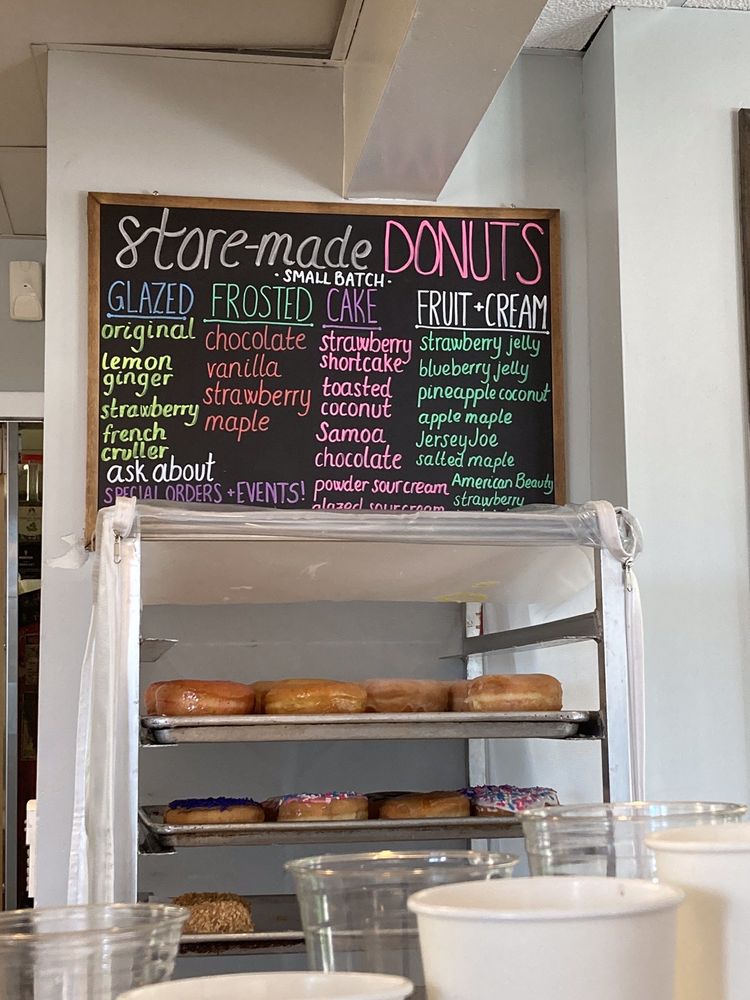 store-made DONUTS
· SMALL BATCH ·
GLAZED
original
lemon
ginger
strawberry
french
cruller
ask about
SPECIAL ORDERS + EVENTS!
FROSTED
chocolate
vanilla
strawberry
maple
CAKE
strawberry
shortcake
toasted
coconut
Samoa
chocolate
powder sour cream
glazed sour cream
FRUIT + CREAM
strawberry jelly
blueberry jelly
pineapple coconut
apple maple
Jersey Joe
salted maple
American Beauty
strawberry